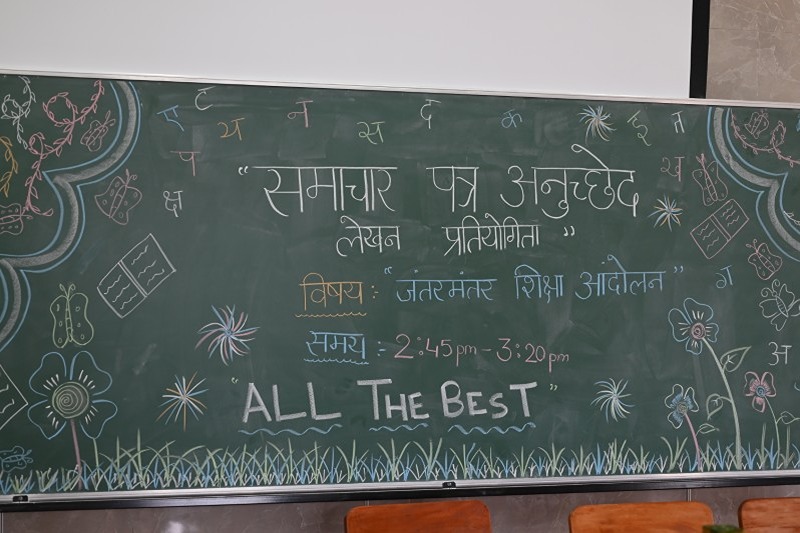 ए ट य न स द क इ त
प क्ष ख
"समाचार पत्र अनुच्छेद
लेखन प्रतियोगिता"
विषय : "जंतरमंतर शिक्षा आदोलन" ग
समय :- 2:45pm - 3:20pm
अ
"ALL THE BEST"